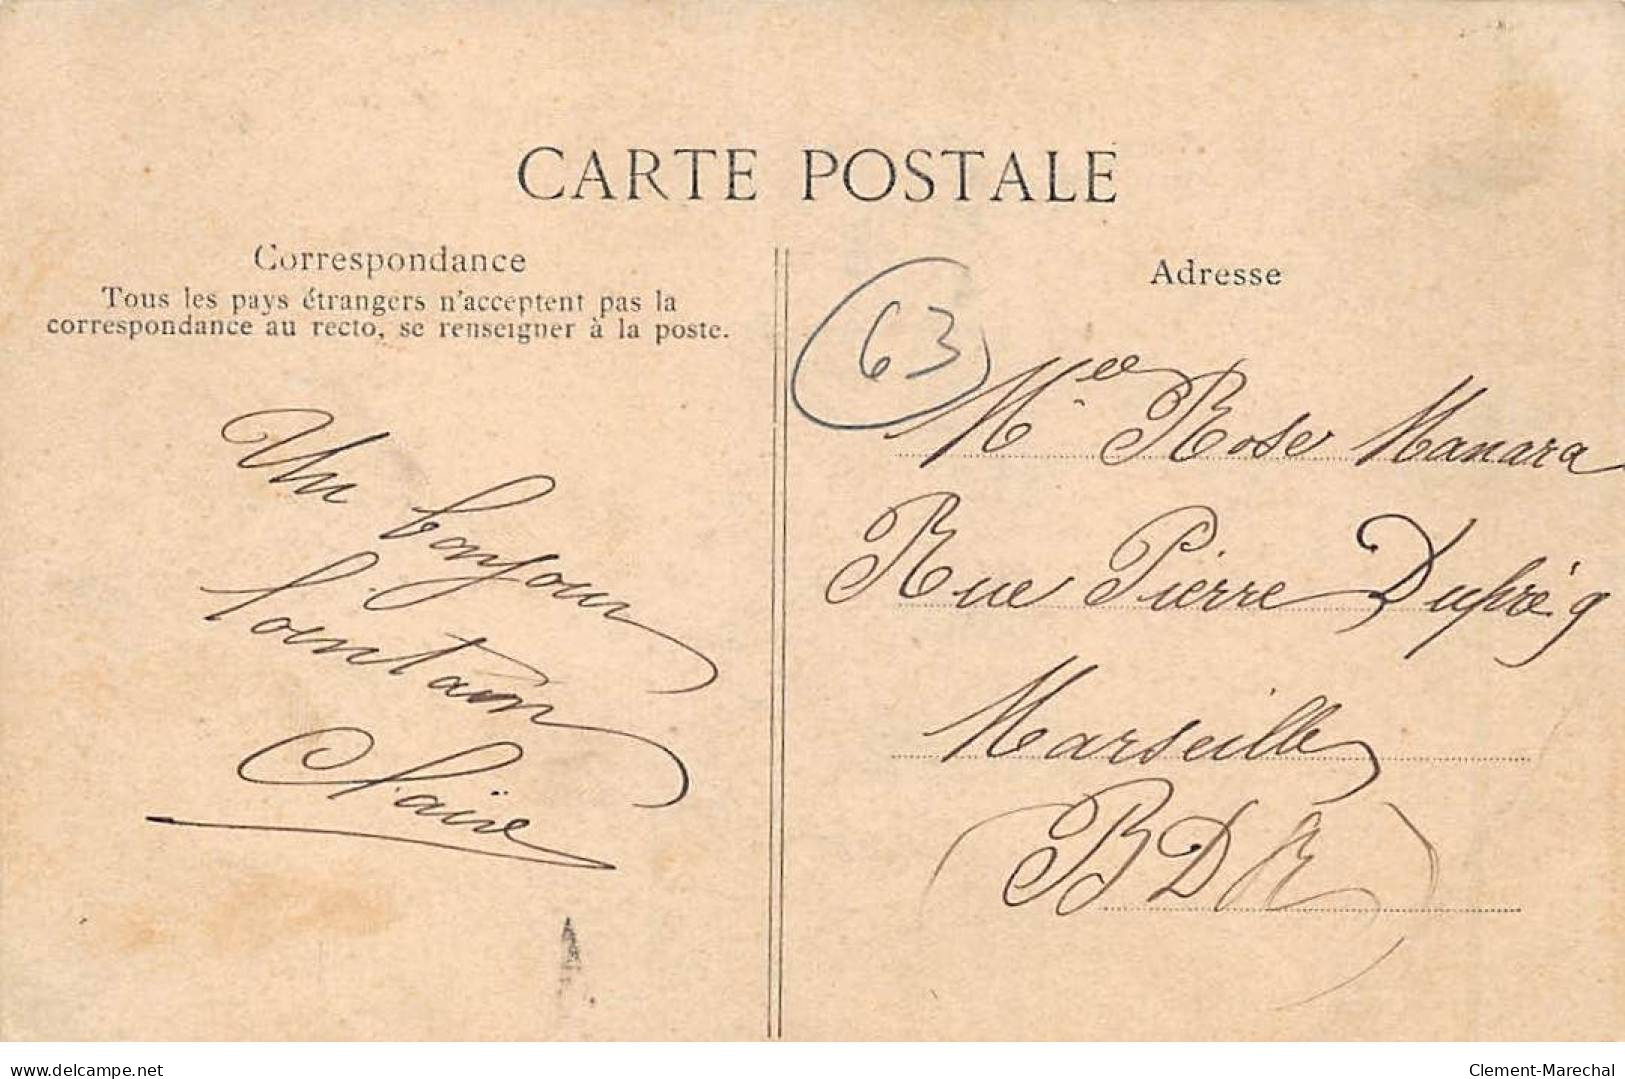 CARTE POSTALE
Correspondance
Tous les pays étrangers n'acceptent pas la
correspondance au recto, se renseigner à la poste.
Un bonjour
lointain
Claire
Adresse
63
Melle Rose Manara
Rue Pierre Dupré 9
Marseille
(BDR)
delcampe.net
Clement-Marechal